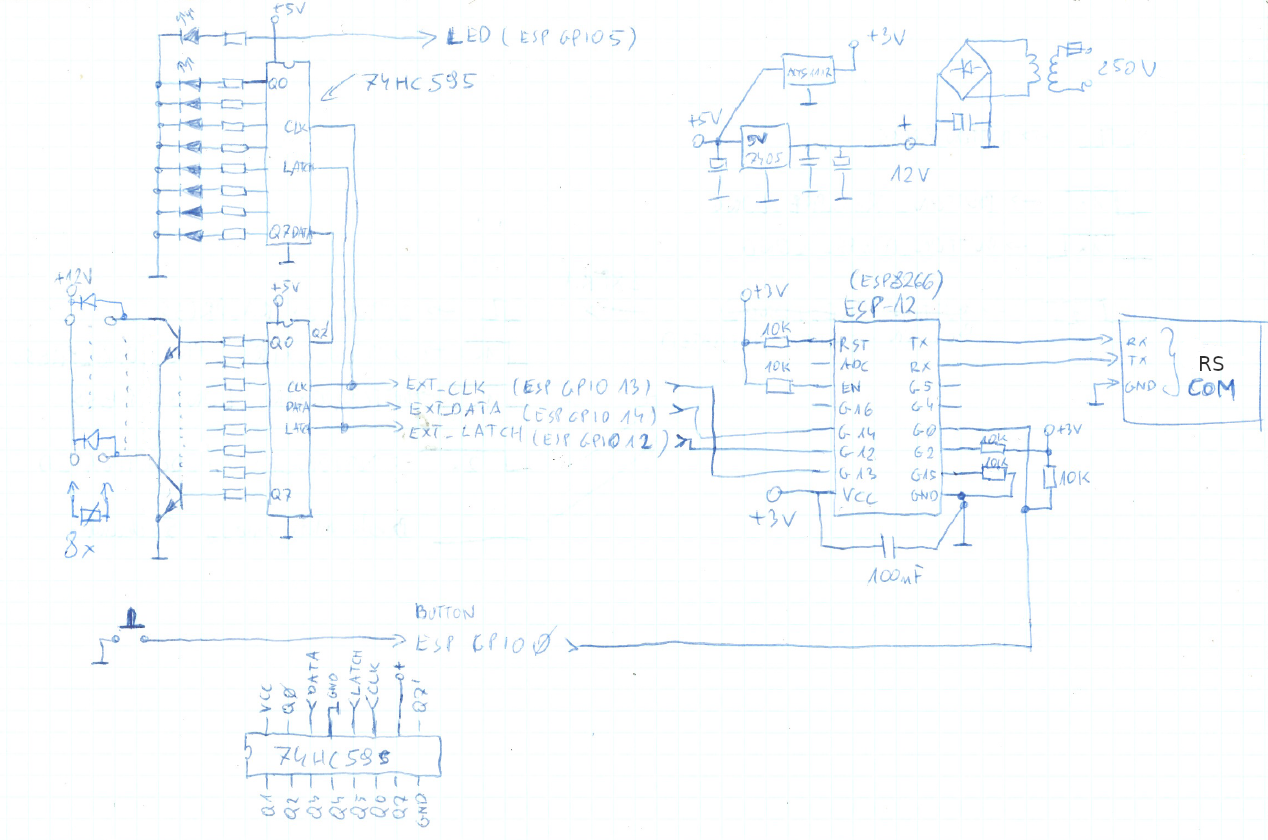 +5V
LED (ESP GPIO5)
Q0
74HC595
CLK
LATCH
Q7 DATA
+12V
+5V
Q0
Q7'
CLK
DATA
LATCH
Q7
8x
EXT_CLK (ESP GPIO 13)
EXT_DATA (ESP GPIO 14)
EXT_LATCH (ESP GPIO 12)
+3V
+5V
5V
7405
+
12V
250V
(ESP8266)
ESP-12
+3V
10K
10K
RST
ADC
EN
G16
G14
G12
G13
VCC
TX
RX
G5
G4
G0
G2
G15
GND
+3V
100nF
10K
10K
+3V
10K
RX
TX
GND
RS
COM
BUTTON
ESP GPIO0
VCC
Q0
DATA
GND
LATCH
CLK
Q7'
74HC595
Q1
Q2
Q3
Q4
Q5
Q6
Q7
GND